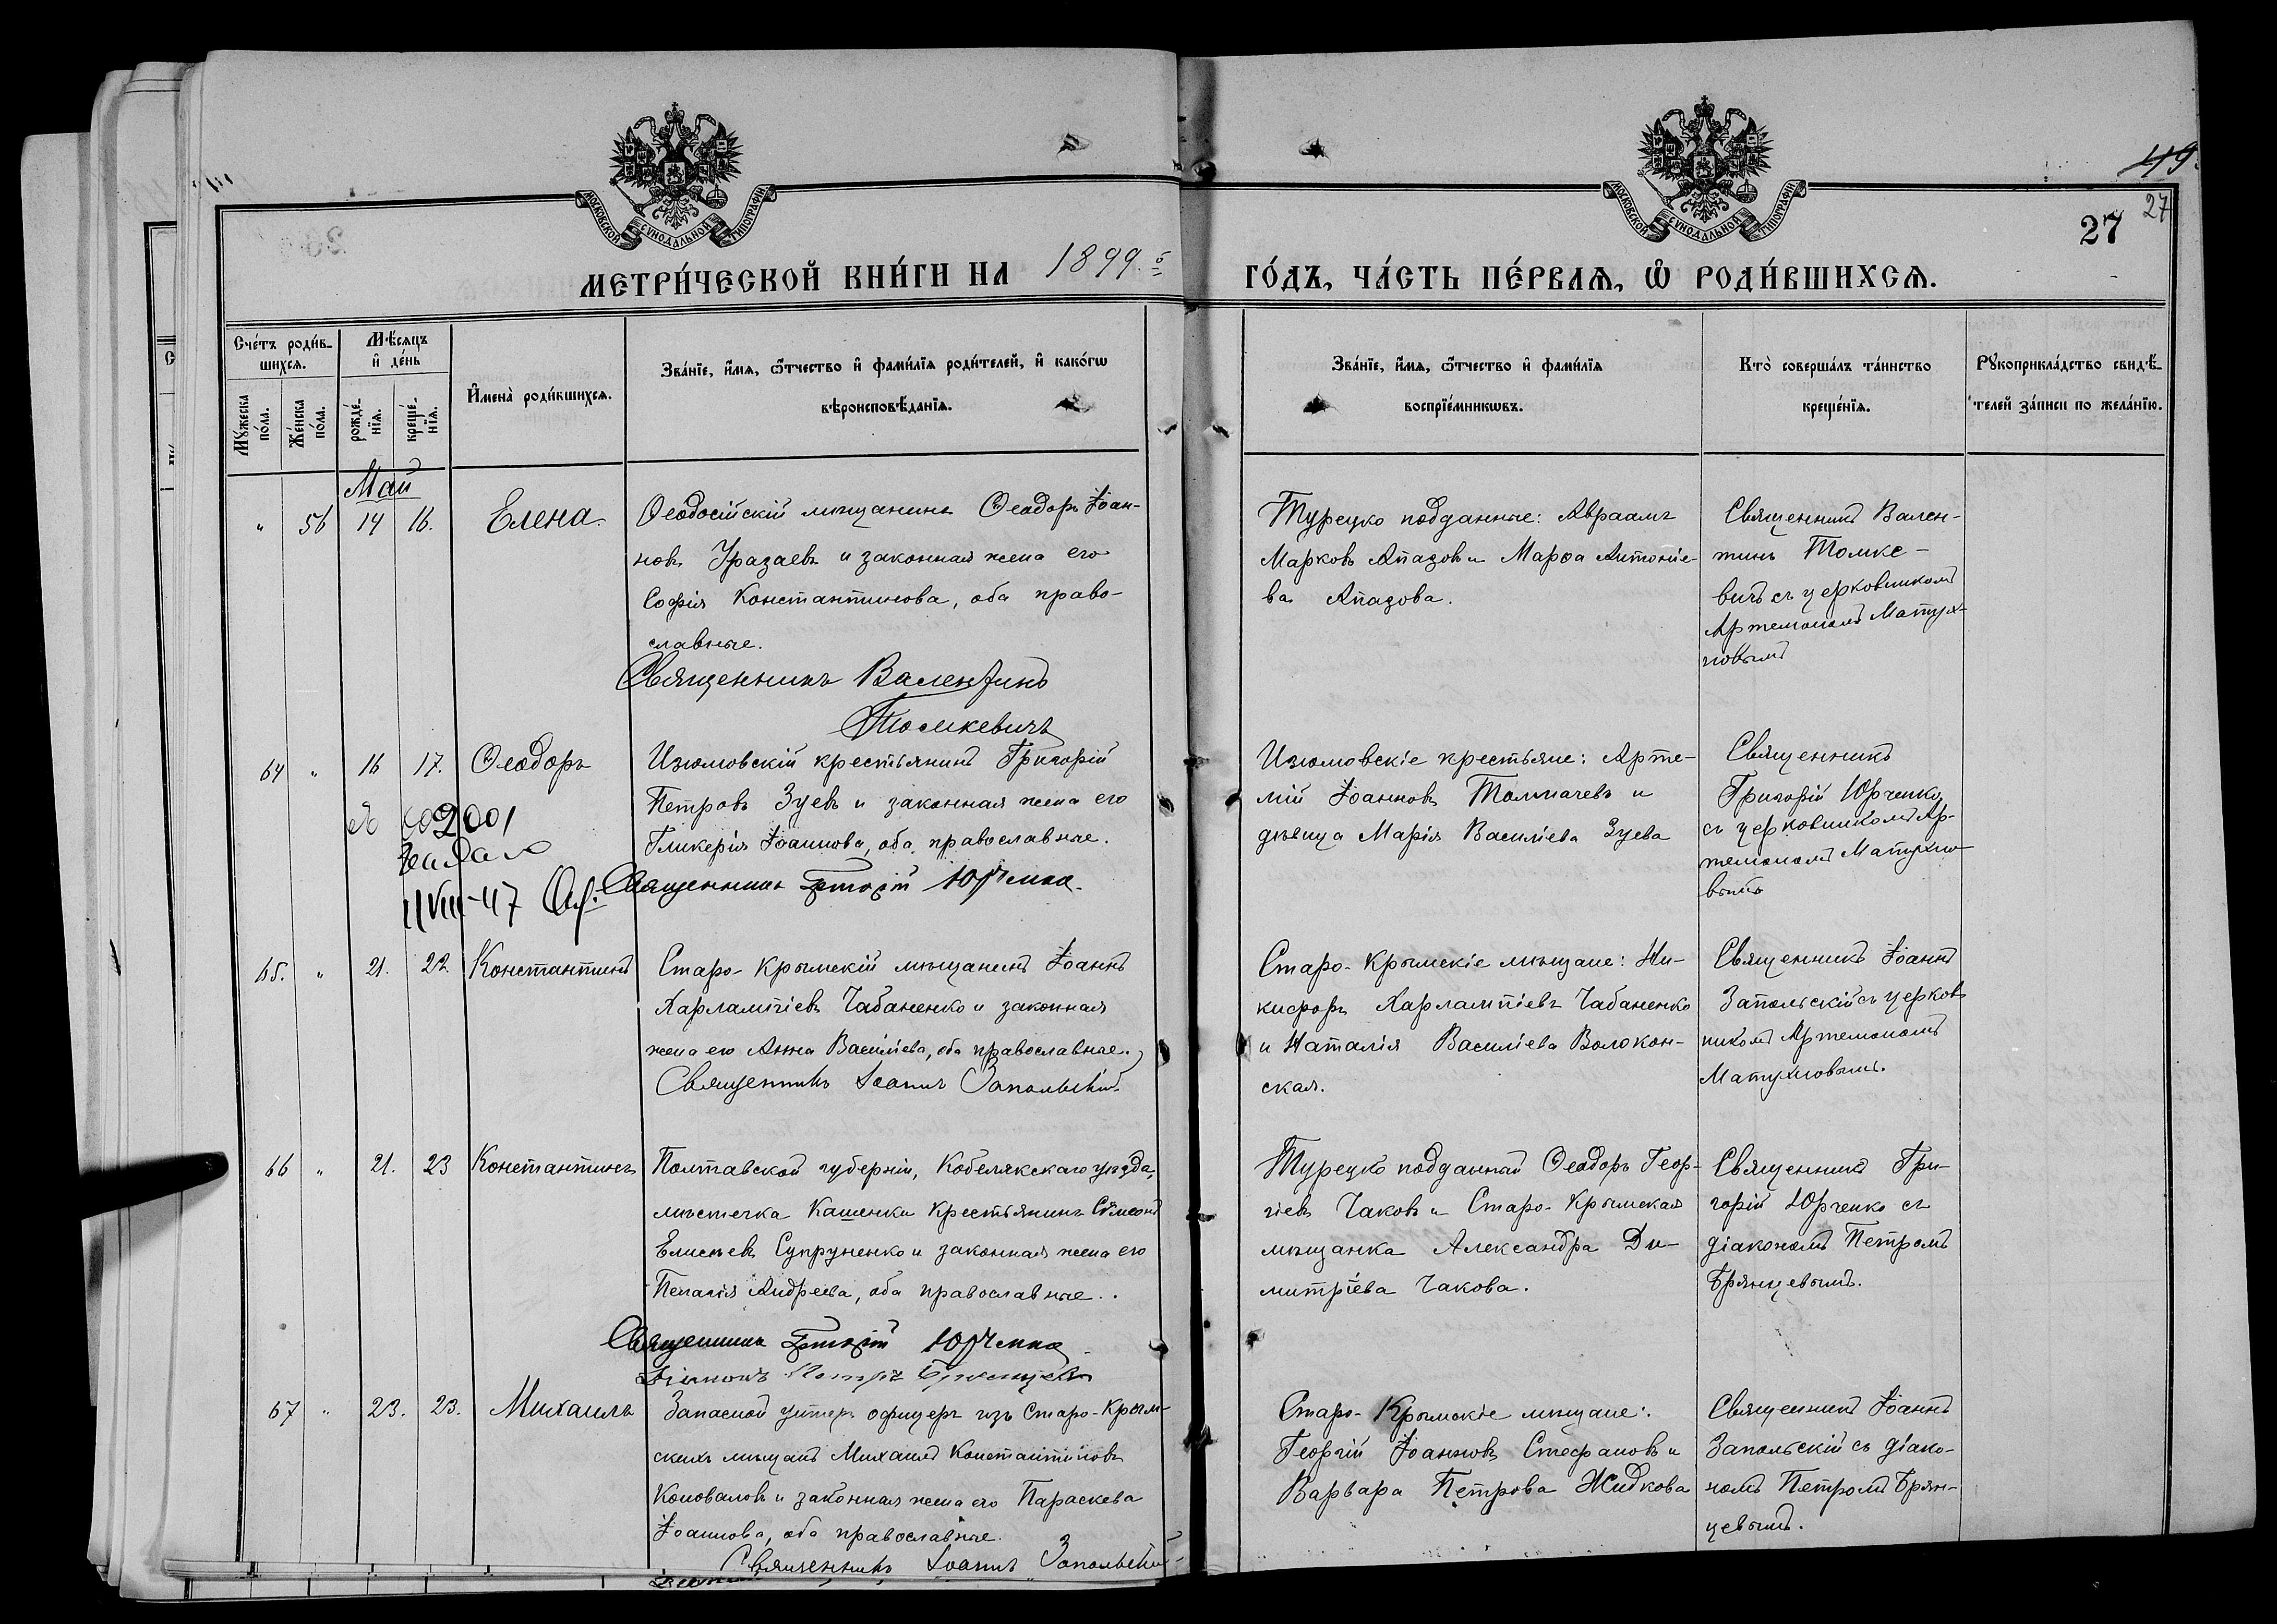 МОСКОВСКОЙ СѴНОДАЛЬНОЙ ТИПОГРАФІИ
МОСКОВСКОЙ СѴНОДАЛЬНОЙ ТИПОГРАФІИ
49.
27
27
МЕТРИ́ЧЕСКОЙ КНИ́ГИ НА 1899.й ГО́ДЪ, ЧА́СТЬ ПЕ́РВАѦ, Ѽ РОДИ́ВШИХСѦ.
Сче́тъ роди́в-
шихся.
Му́жеска по́ла.
Же́нска по́ла.
Мѣ́сяцъ
и҆ де́нь
рожде́-
нїя.
креще́-
нїя.
И҆мена̀ роди́вшихсѧ.
Зва́нїе, и҆́мѧ, ѻ҆́тчество и҆ фами́лїѧ роди́телей, и҆ како́гѡ
вѣроисповѣ́данїѧ.
Зва́нїе, и҆́мѧ, ѻ҆́тчество и҆ фами́лїѧ
воспрїе́мникѡвъ.
Кто̀ соверша́лъ та́инство
креще́нїѧ.
Рꙋкоприкла́дство свидѣ́-
телей за́писи по жела́нїю.
Май
" 56 14 16. Елена.
Ѳеодосійскій мѣщанинъ Ѳеодоръ Іоан-
новъ Уразаевъ и законная жена его
Софія Константинова, оба право-
славные.
Священникъ Валентинъ
Томкевичъ
Турецко подданные: Авраамъ
Марковъ Апазовъ и Марѳа Антоніе-
ва Апазова.
Священникъ Вален-
тинъ Томке-
вичъ съ церковникомъ
Артемономъ Матух-
новымъ
64 " 16 17. Ѳеодоръ
Изюмовскій крестьянинъ Григорій
Петровъ Зуевъ и законная жена его
Гликерія Іоаннова, оба православные.
Священникъ Григорій Юрченко.
2001
11 VIII-47
Изюмовскіе крестьяне: Арте-
мій Іоанновъ Толмачевъ и
дѣвица Марія Василіева Зуева
Священникъ
Григорій Юрченко
съ церковникомъ Ар-
темономъ Матухно-
вымъ
65. " 21. 22 Константинъ
Старо-Крымскій мѣщанинъ Іоаннъ
Харлампіевъ Чабаненко и законная
жена его Анна Василіева, оба православные.
Священникъ Іоаннъ Запольскій.
Старо-Крымскіе мѣщане: Ни-
кифоръ Харлампіевъ Чабаненко
и Наталія Василіева Волокон-
ская.
Священникъ Іоаннъ
Запольскій съ церков-
никомъ Артемономъ
Матухновымъ.
66 " 21. 23 Константинъ
Полтавской губерніи, Кобелякскаго уѣзда,
мѣстечка Кашенки крестьянинъ Симеонъ
Елисѣевъ Супруненко и законная жена его
Пелагія Андреева, оба православные.
Священникъ Григорій Юрченко
Діаконъ Петръ Брянцевъ
Турецко подданный Ѳеодоръ Геор-
гіевъ Чаковъ и Старо-Крымская
мѣщанка Александра Ди-
митріева Чакова.
Священникъ Гри-
горій Юрченко съ
діакономъ Петромъ
Брянцевымъ.
67 " 23. 23. Михаилъ
Запасной унтеръ офицеръ изъ Старо-Крым-
скихъ мѣщанъ Михаилъ Константиновъ
Коноваловъ и законная жена его Параскева
Іоаннова, оба православные.
Священникъ Іоаннъ Запольскій
Старо-Крымскіе мѣщане:
Георгій Іоанновъ Стефановъ и
Варвара Петрова Жидкова
Священникъ Іоаннъ
Запольскій съ діако-
номъ Петромъ Брян-
цевымъ.